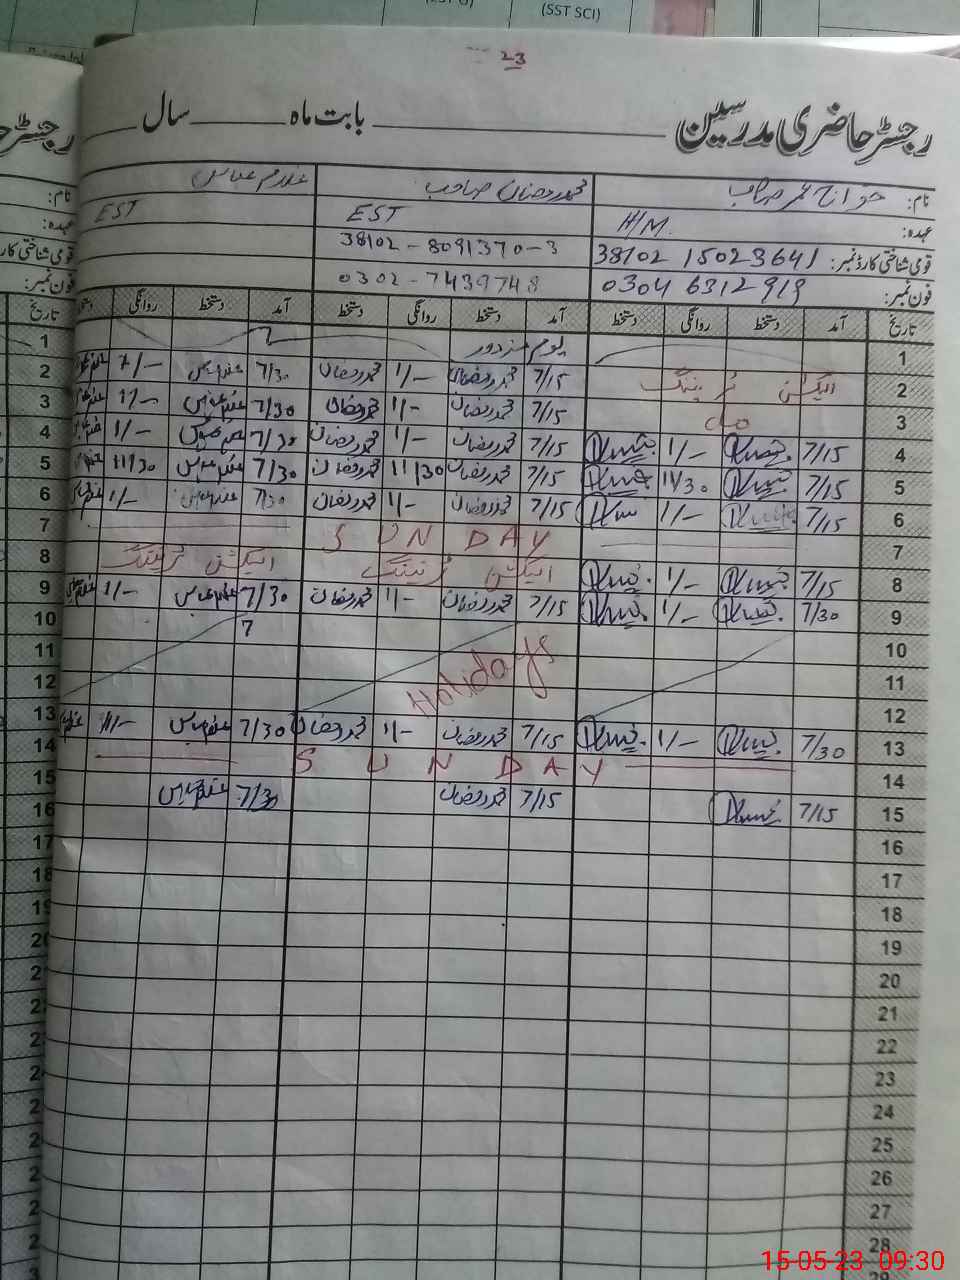 (SST SCI)
23
رجسٹر حاضری مدرسین بابت ماہ سال
نام: محمد رمضان صاحب غلام عباس
عہدہ: H/M EST EST
قومی شناختی کارڈ نمبر: 38102 15023641 38102-8091370-3
فون نمبر: 0304 6312919 0302-7439748
تاریخ آمد دستخط روانگی دستخط آمد دستخط روانگی دستخط آمد دستخط روانگی تاریخ
1 یوم مزدور 1
2 الیکشن ٹریننگ 7/15 محمد رمضان 1/- محمد رمضان 7/30 غلام عباس 1/- 2
3 do 7/15 محمد رمضان 1/- محمد رمضان 7/30 غلام عباس 1/- 3
4 7/15 1/- 7/15 محمد رمضان 1/- محمد رمضان 7/30 غلام عباس 1/- 4
5 7/15 11/30 7/15 محمد رمضان 11/30 محمد رمضان 7/30 غلام عباس 11/30 5
6 7/15 1/- 7/15 محمد رمضان 1/- محمد رمضان 7/30 غلام عباس 1/- 6
7 SUN DAY 7
8 7/15 1/- الیکشن ٹریننگ الیکشن ٹریننگ 8
9 7/30 1/- 7/15 محمد رمضان 1/- محمد رمضان 7/30 غلام عباس 1/- 9
10 7 10
11 Holidays 11
12 12
13 7/30 1/- 7/15 محمد رمضان 1/- محمد رمضان 7/30 غلام عباس 13
14 SUN DAY 14
15 7/15 7/15 محمد رمضان 7/30 غلام عباس 15
16 16
17 17
18 18
19 19
20 20
21
22
23
24
25
26
27
28
29
15-05-23 09:30